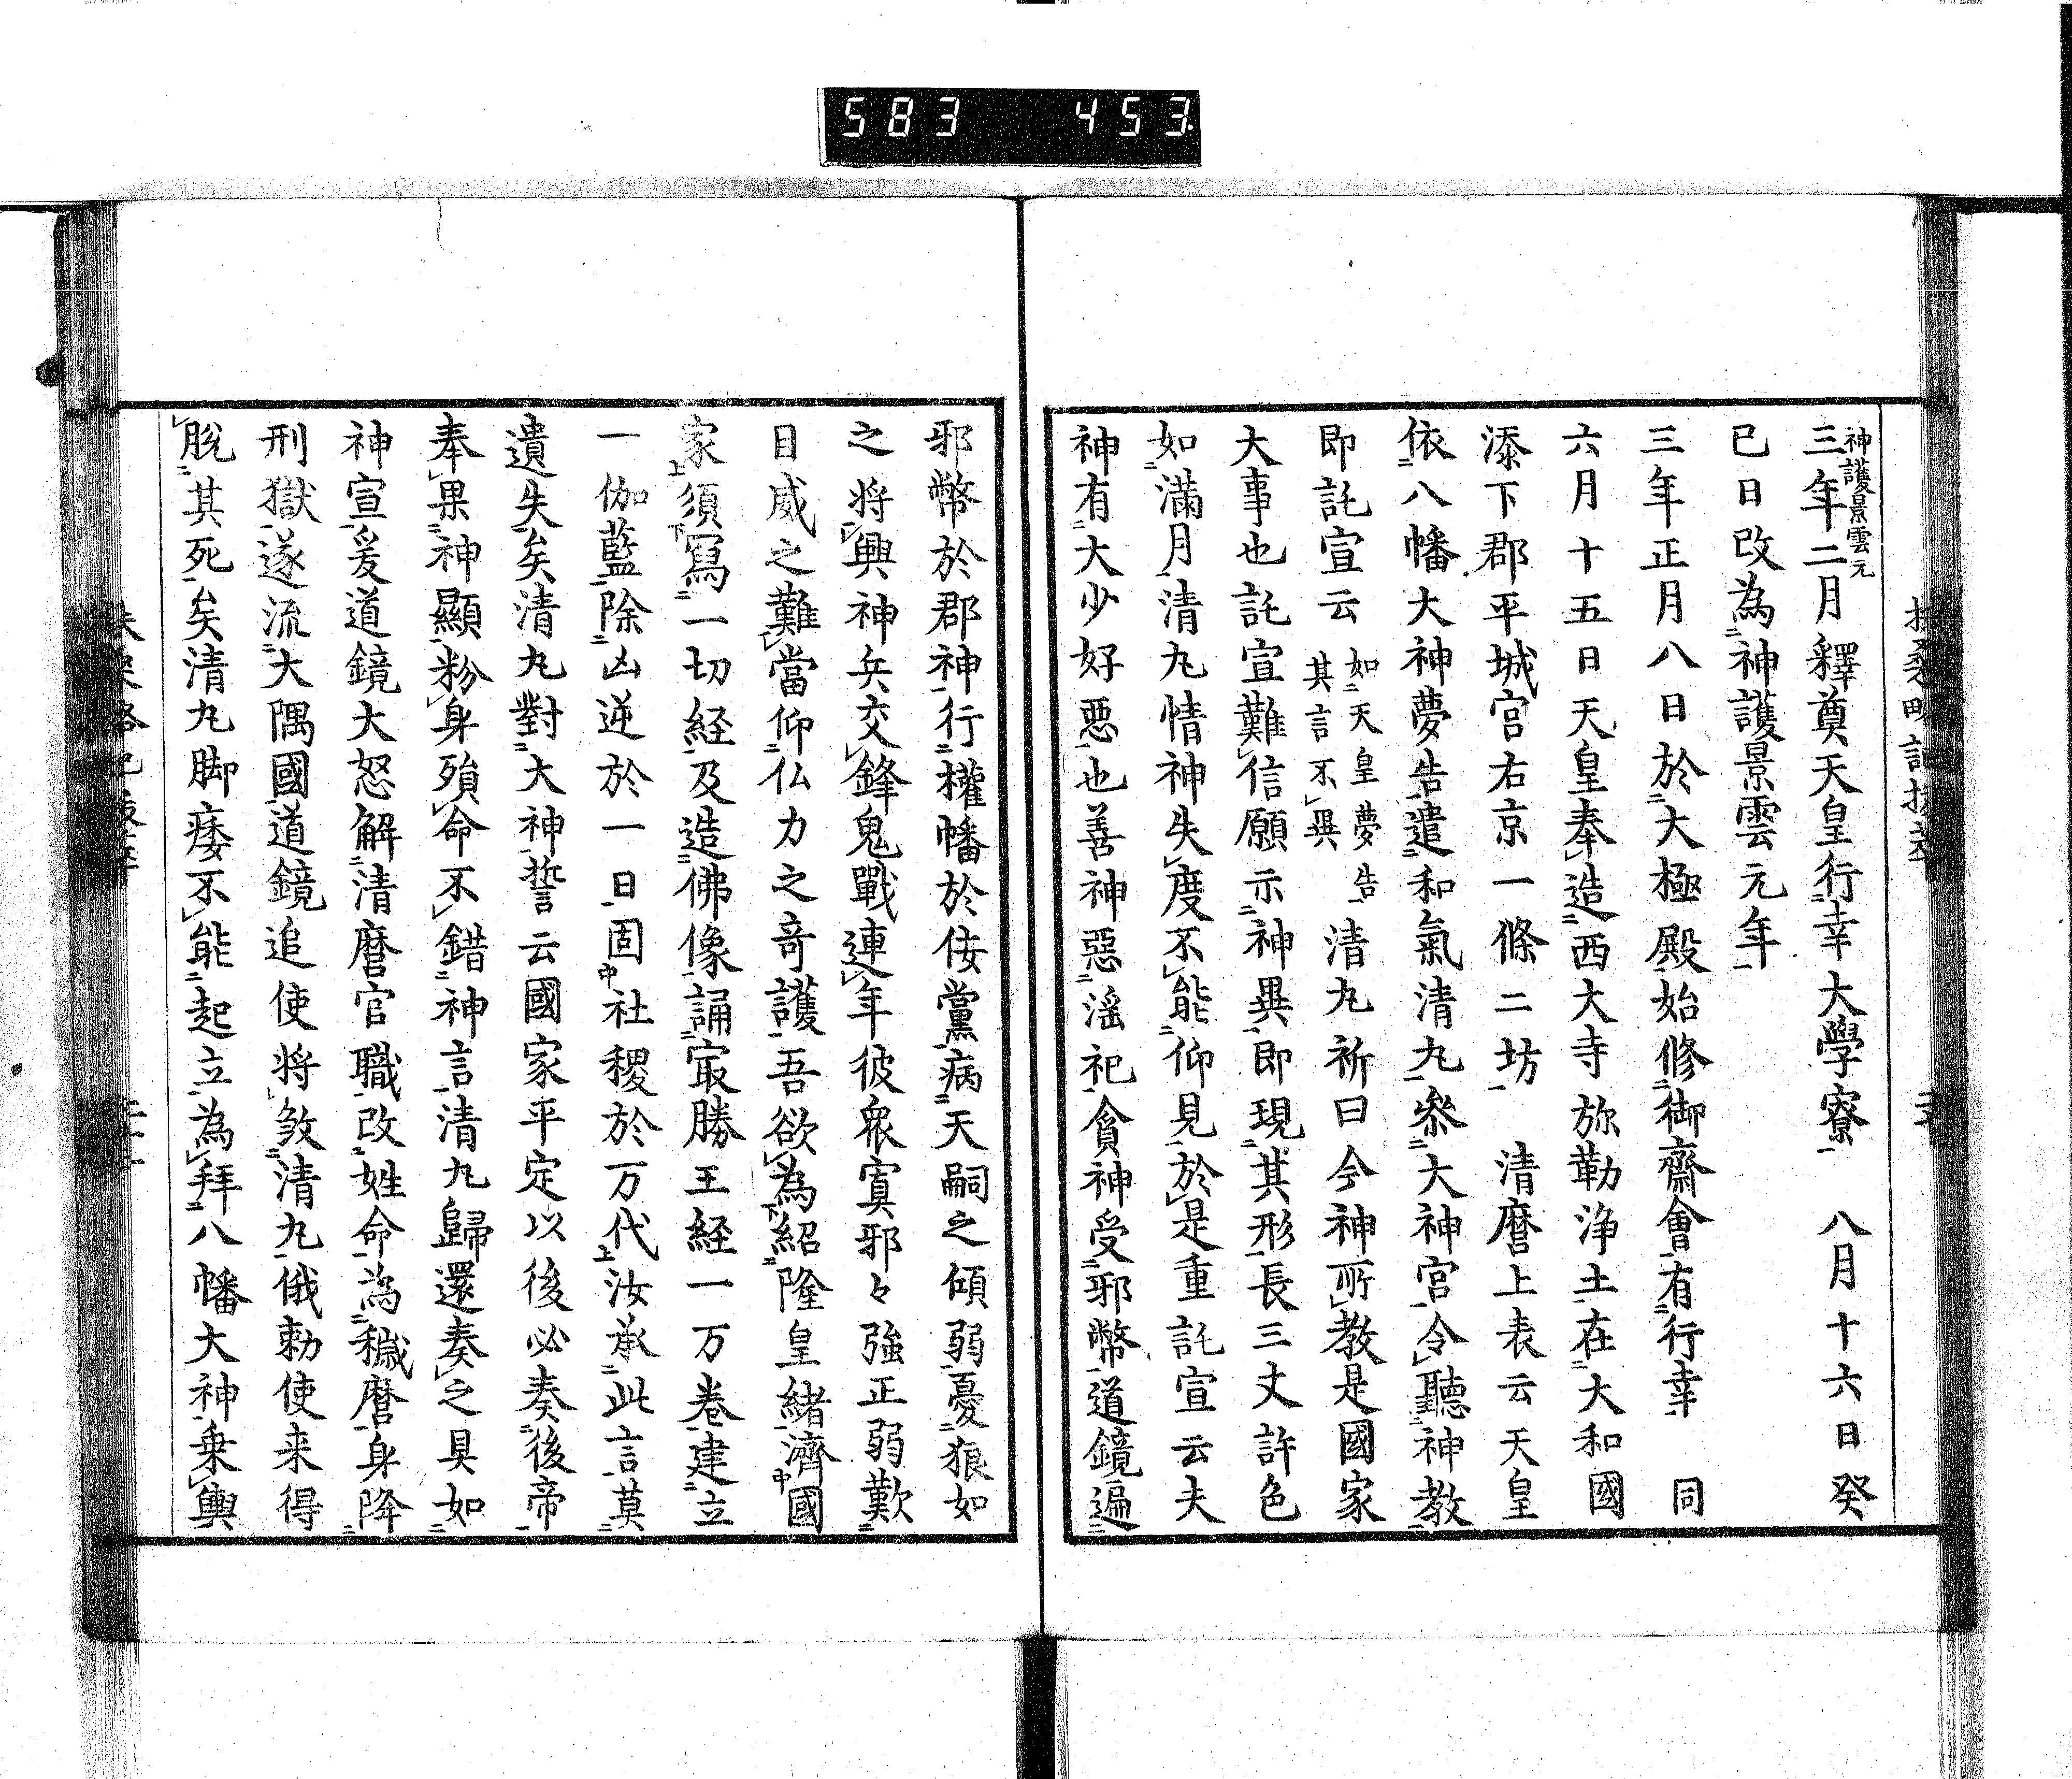 583 453.
神護景雲元
三年二月釋奠天皇行幸大學寮 八月十六日癸
巳日改為神護景雲元年
三年正月八日於大極殿始修御齋會有行幸 同
六月十五日天皇奉造西大寺弥勒浄土在大和國
添下郡平城宮右京一條二坊 清麿上表云天皇
依八幡大神夢告遣和氣清丸參大神宮令聽神教
即託宣云如天皇夢告其言不異清丸祈曰今神所教是國家
大事也託宣難信願示神異即現其形長三丈許色
如滿月清丸情神失度不能仰見於是重託宣云夫
神有大少好惡也善神惡淫祀貪神受邪幣道鏡遍
邪幣於郡神行權幡於侫黨病天嗣之傾弱憂狼如
之将興神兵交鋒鬼戰連年彼衆寡邪々強正弱歎
日威之難當仰仏力之竒護吾欲為紹隆皇緒濟國
家須寫一切経及造佛像誦冣勝王経一万卷建立
一伽藍除凶逆於一日固社稷於万代汝承此言莫
遺失矣清丸對大神誓云國家平定以後必奏後帝
奉果神願粉身殞命不錯神言清丸歸還奏之具如
神宣爰道鏡大怒解清麿官職改姓命為穢麿身降
刑獄遂流大隅國道鏡追使将殺清丸俄勅使来得
脫其死矣清丸脚痿不能起立為拜八幡大神乗輿